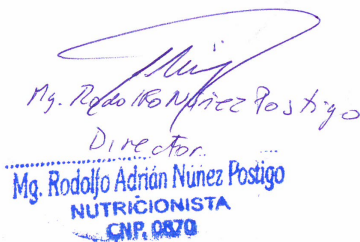 Mg. Rodolfo Núñez Postigo
Director.
Mg. Rodolfo Adrián Núñez Postigo
NUTRICIONISTA
CNP. 0870